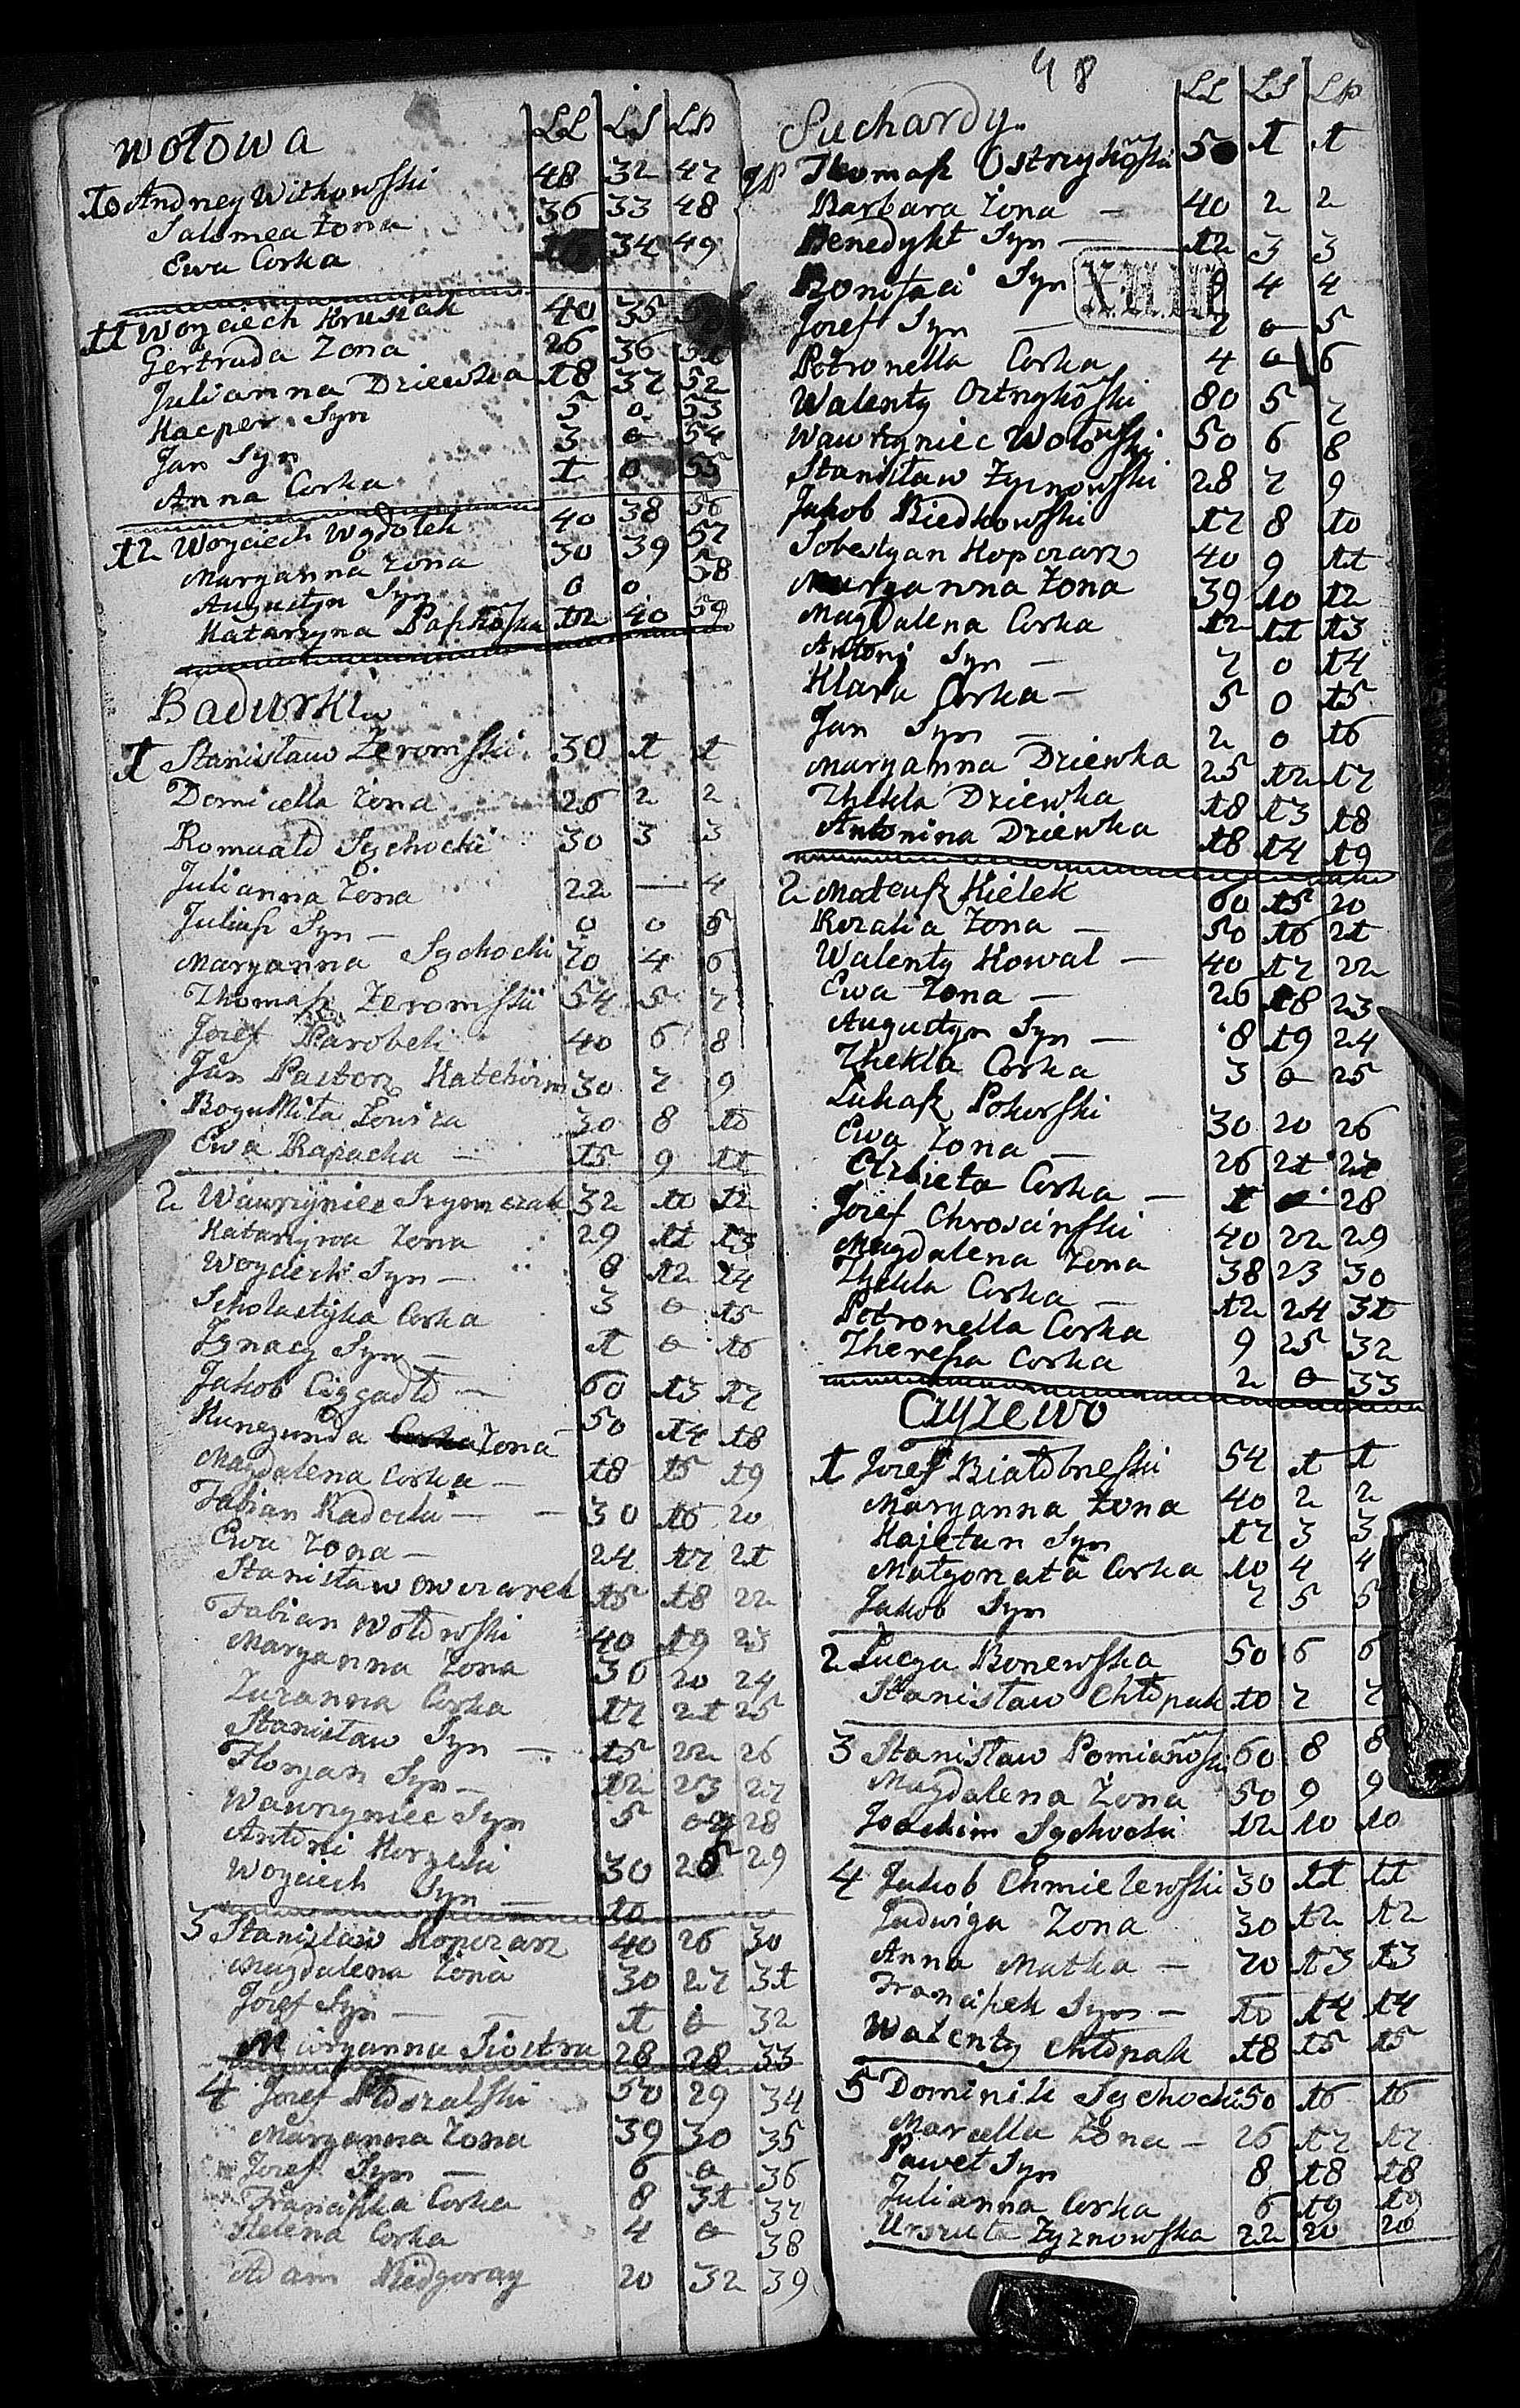 wołowa LL LS LP
10 Andrzey Witkowski 48 32 47
Salomea Żona 36 33 48
Ewa Corka 34 49
11 Woyciech Krusak 40 35
Gertruda Zona 26 36 51
Julianna Dziewka 18 37 52
Kacper Syn 5 0 53
Jan Syn 3 0 54
Anna Corka 1 0 55
12 Woyciech Wydolek 40 38 56
Maryanna Zona 30 39 57
Augustyn Syn 0 0 58
Katarzyna 12 40 59
Badurki
1 Stanisław Zeromski 30 1 1
Domicella Żona 26 2 2
Romuald Sychocki 30 3 3
Julianna Żona 22 — 4
Juliusz Syn — 0 0 5
Maryanna Sychocki 70 4 6
Thomasz Zeromski 54 5 7
Jozef Parobek 40 6 8
Jan Pastorz 30 7 9
30 8 10
Ewa Rapacka — 15 9 11
2 Wawrzyniec Szymczak 32 10 12
Katarzyna Zona 29 11 13
Woyciech Syn — 8 12 14
Scholastyka Corka 3 0 15
Ignacy Syn — 1 0 16
Jakob 60 13 17
Kunegunda Zona 50 14 18
Magdalena Corka — 18 15 19
Fabian Radocki — 30 16 20
Ewa Zona — 24 17 21
Stanisław Owczarek 15 18 22
Fabian Wołowski 40 19 23
Maryanna Zona 30 20 24
Zuzanna Corka 17 21 25
Stanisław Syn — 15 22 26
Floryan Syn — 12 23 27
Wawrzyniec Syn 5 28
Antoni 30 25 29
Woyciech Syn — 10
3 Stanisław Kopczarz 40 26 30
Magdalena Zona 30 27 31
Jozef Syn — 1 0 32
Maryanna Siostra 28 28 33
4 Jozef 50 29 34
Maryanna Zona 39 30 35
Jozef Syn — 6 0 36
Franciszka Corka 8 31 37
Helena Corka 4 0 38
Adam Niedgoray 20 32 39
48
Suchardy. LL LS LP
1 Thomasz Ostrzykoski 50 1 1
Barbara Żona — 40 2 2
Benedykt Syn — 12 3 3
Bonifaci Syn 9 4 4
Jozef Syn — 7 0 5
Petronella Corka 4 0 6
Walenty Ostrzykoski 80 5 7
Wawrzyniec Wołoski 50 6 8
Stanisław Zyznowski 28 7 9
Jakob Biedkowski 17 8 10
Sobestyan Kopczarz 40 9 11
Maryanna Żona 39 10 12
Magdalena Corka 12 11 13
Antoni Syn — 7 0 14
Klara Corka — 5 0 15
Jan Syn — 2 0 16
Maryanna Dziewka 25 12 17
Thekla Dziewka 18 13 18
Antonina Dziewka 18 14 19
2 Mateusz Kielek 60 15 20
Rozalia Żona — 50 16 21
Walenty Kowal — 40 17 22
Ewa Zona — 26 18 23
Augustyn Syn — 8 19 24
Thekla Corka 3 0 25
Łukasz Pokorski 30 20 26
Ewa Zona — 26 21 27
Elzbieta Corka — 1 0 28
Jozef Chroscinski 40 22 29
Magdalena Zona 38 23 30
Thekla Corka — 12 24 31
Petronella Corka 9 25 32
Theresa Corka 2 0 33
Czyzewo
1 Jozef Białobrzeski 54 1 1
Maryanna Żona 40 2 2
Kajetan Syn 17 3 3
Małgorzata Corka 10 4 4
Jakob Syn 7 5 5
2 Łucya Bonewska 50 6 6
Stanisław Chłopak 10 7 7
3 Stanisław Pomianoski 60 8 8
Magdalena Żona 50 9 9
Joachim Sychocki 12 10 10
4 Jakob Chmielewski 30 11 11
Jadwiga Zona 30 12 12
Anna Matka — 70 13 13
Franciszek Syn — 10 14 14
Walenty Chłopak 18 15 15
5 Dominik Sychocki 50 16 16
Marcella Żona — 26 17 17
Paweł Syn 8 18 18
Julianna Corka 6 19 19
Urszula Zyznowska 22 20 20